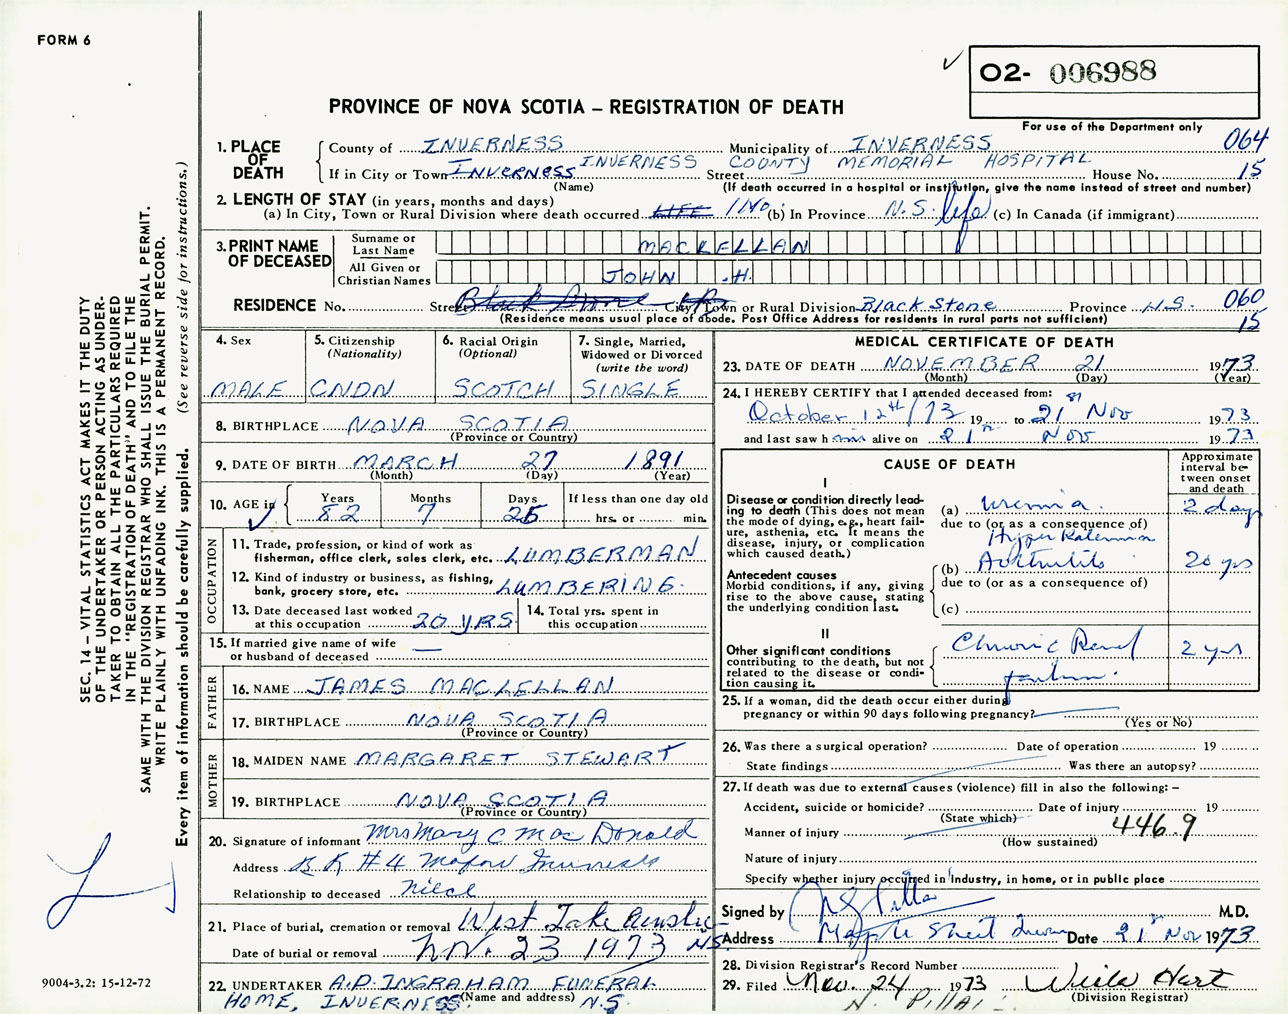 FORM 6
O2- 006988
PROVINCE OF NOVA SCOTIA – REGISTRATION OF DEATH
For use of the Department only
064
15
1. PLACE OF DEATH
County of INVERNESS Municipality of INVERNESS
INVERNESS COUNTY MEMORIAL HOSPITAL
If in City or Town INVERNESS Street House No.
(Name) (If death occurred in a hospital or institution, give the name instead of street and number)
2. LENGTH OF STAY (in years, months and days)
(a) In City, Town or Rural Division where death occurred LIFE 1 Mo. (b) In Province N.S. life (c) In Canada (if immigrant)
3. PRINT NAME OF DECEASED
Surname or Last Name MACLELLAN
All Given or Christian Names JOHN .H.
RESIDENCE No. Street City, Town or Rural Division Black Stone Province N.S. 060
15
(Residence means usual place of abode. Post Office Address for residents in rural parts not sufficient)
4. Sex
MALE
5. Citizenship (Nationality)
CNDN
6. Racial Origin (Optional)
SCOTCH
7. Single, Married, Widowed or Divorced (write the word)
SINGLE
8. BIRTHPLACE NOVA SCOTIA
(Province or Country)
9. DATE OF BIRTH MARCH 27 1891
(Month) (Day) (Year)
10. AGE in Years 82 Months 7 Days 25 If less than one day old
hrs. or min.
OCCUPATION
11. Trade, profession, or kind of work as fisherman, office clerk, sales clerk, etc. LUMBERMAN
12. Kind of industry or business, as fishing, bank, grocery store, etc. LUMBERING.
13. Date deceased last worked at this occupation 20 YRS
14. Total yrs. spent in this occupation
15. If married give name of wife or husband of deceased —
FATHER
16. NAME JAMES MACLELLAN
17. BIRTHPLACE NOVA SCOTIA
(Province or Country)
MOTHER
18. MAIDEN NAME MARGARET STEWART
19. BIRTHPLACE NOVA SCOTIA
(Province or Country)
20. Signature of informant Mrs Mary C Mac Donald
Address R R #4 Mabou Inverness
Relationship to deceased niece
21. Place of burial, cremation or removal West Lake Ainslie N.S.
Date of burial or removal Nov. 23 1973
22. UNDERTAKER A.P. INGRAHAM FUNERAL
HOME, INVERNESS N.S
(Name and address)
MEDICAL CERTIFICATE OF DEATH
23. DATE OF DEATH NOVEMBER 21 1973
(Month) (Day) (Year)
24. I HEREBY CERTIFY that I attended deceased from:
October 12th/73 19 to 21st Nov 1973
and last saw him alive on 21st Nov 1973
CAUSE OF DEATH
Approximate interval between onset and death
I
Disease or condition directly leading to death (This does not mean the mode of dying, e.g., heart failure, asthenia, etc. It means the disease, injury, or complication which caused death.)
(a) Uremia. 2 days
due to (or as a consequence of)
Hyperkalemia
Antecedent causes
Morbid conditions, if any, giving rise to the above cause, stating the underlying condition last.
(b) Arthritis 20 yrs
due to (or as a consequence of)
(c)
II
Other significant conditions contributing to the death, but not related to the disease or condition causing it.
Chronic Renal 2 yrs
failure.
25. If a woman, did the death occur either during pregnancy or within 90 days following pregnancy?
(Yes or No)
26. Was there a surgical operation? Date of operation 19
State findings Was there an autopsy?
27. If death was due to external causes (violence) fill in also the following: –
Accident, suicide or homicide? Date of injury 19
(State which) 446.9
Manner of injury
(How sustained)
Nature of injury
Specify whether injury occurred in industry, in home, or in public place
Signed by N Pillai M.D.
Address Maple Street Date 21st Nov 1973
28. Division Registrar's Record Number
29. Filed Nov. 24 1973 Hart
N. PILLAI
(Division Registrar)
SEC. 14 – VITAL STATISTICS ACT MAKES IT THE DUTY
OF THE UNDERTAKER OR PERSON ACTING AS UNDERTAKER
TO OBTAIN ALL THE PARTICULARS REQUIRED
IN THE "REGISTRATION OF DEATH" AND TO FILE THE
SAME WITH THE DIVISION REGISTRAR WHO SHALL ISSUE THE BURIAL PERMIT.
WRITE PLAINLY WITH UNFADING INK. THIS IS A PERMANENT RECORD.
Every item of information should be carefully supplied. (See reverse side for instructions.)
9004-3.2: 15-12-72